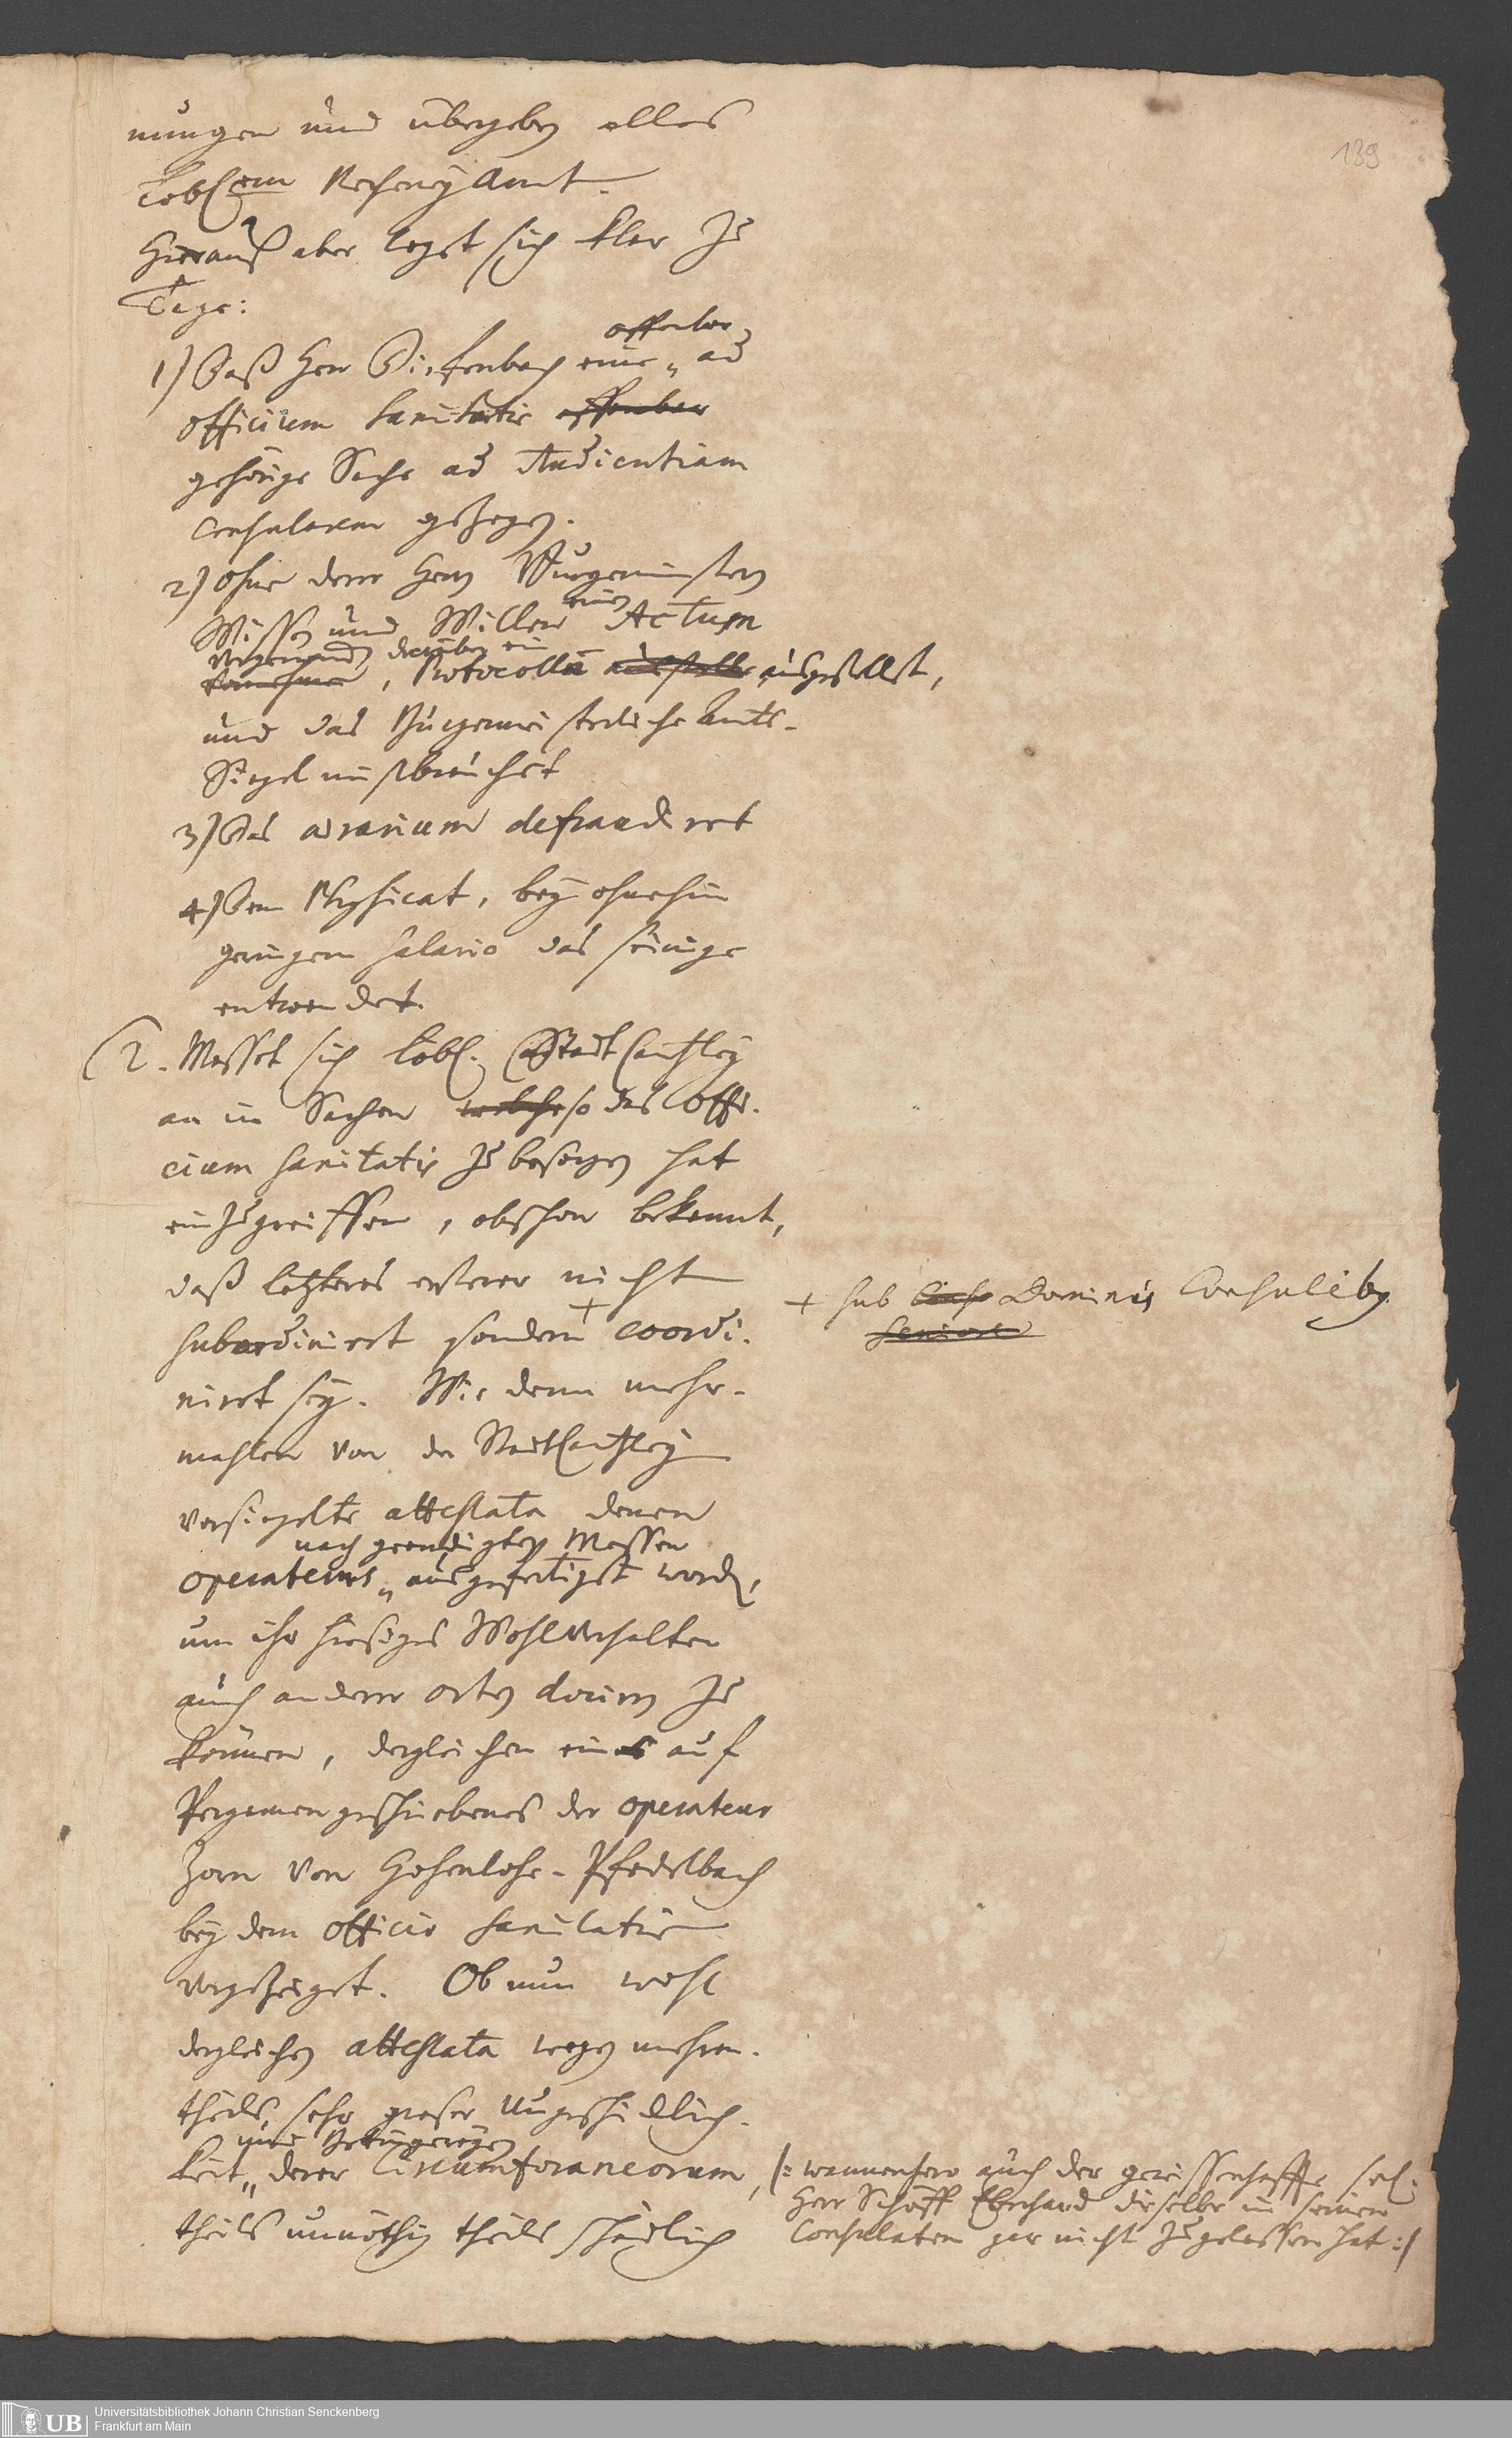 139
nungen und übergeben alles
Löbl.em Recheney Amt.
Hierauß aber leget sich klar zu
Tage:
1) Daß Herr Diefenbach eine offenbar ad
officium Sanitatis offenbar
gehörige Sache ad Audientiam
Consularem gezogen.
2) Ohne derer Herren Burgermeistern
Wissen und Willen einen Actum
vorgenommen, darüber ein Protocollū ausgestellet,
und das Burgermeisterliche Amts-
Siegel mißbrauchet
3) Das aerarium defraudiret
4) Dem Physicat, bey ohnehin
geringem Salario das seinige
entwendet.
2. Masset sich löbl. Stadt Cantzley
an in Sachen welche so das Offi-
cium Sanitatis zu besorgen hat
einzugreiffen, obschon bekannt,
daß letzteres ersterer nicht
subordiniret sondern + coordi-
niret sey. Wie denn mehr-
+ sub Dominis Consulibq
Seniore
mahlen von der Stadt Cantzley
versiegelte attestata denen
nach geendigten Messen
operateurs „ ausgefertiget worden,
um ihr hiesiges Wohlverhalten
auch anderer Orten dociren zu
können, dergleichen eines auf
Pergamen geschriebenes der operateur
Zorn von Hohenlohe-Pfedelbach
bey dem Officio Sanitatis
vorgezeiget. Ob nun wohl
dergleichen attestata wegen mehren-
theils sehr groser Ungeschicklich-
und Betrügereyen
keit „ derer Circumforaneorum,
theils unnöthig theils schädlich
/: wannenhero auch der gewissenhaffte sel.
Herr Schöff Eberhard dieselbe in seinen
Consulaten gar nicht zugelassen hat :/
Universitätsbibliothek Johann Christian Senckenberg
Frankfurt am Main
UB